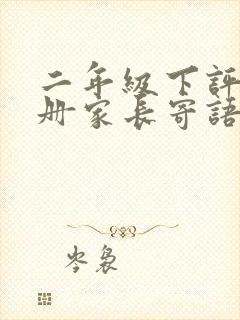 二年級下評
册家長寄語
岑裊